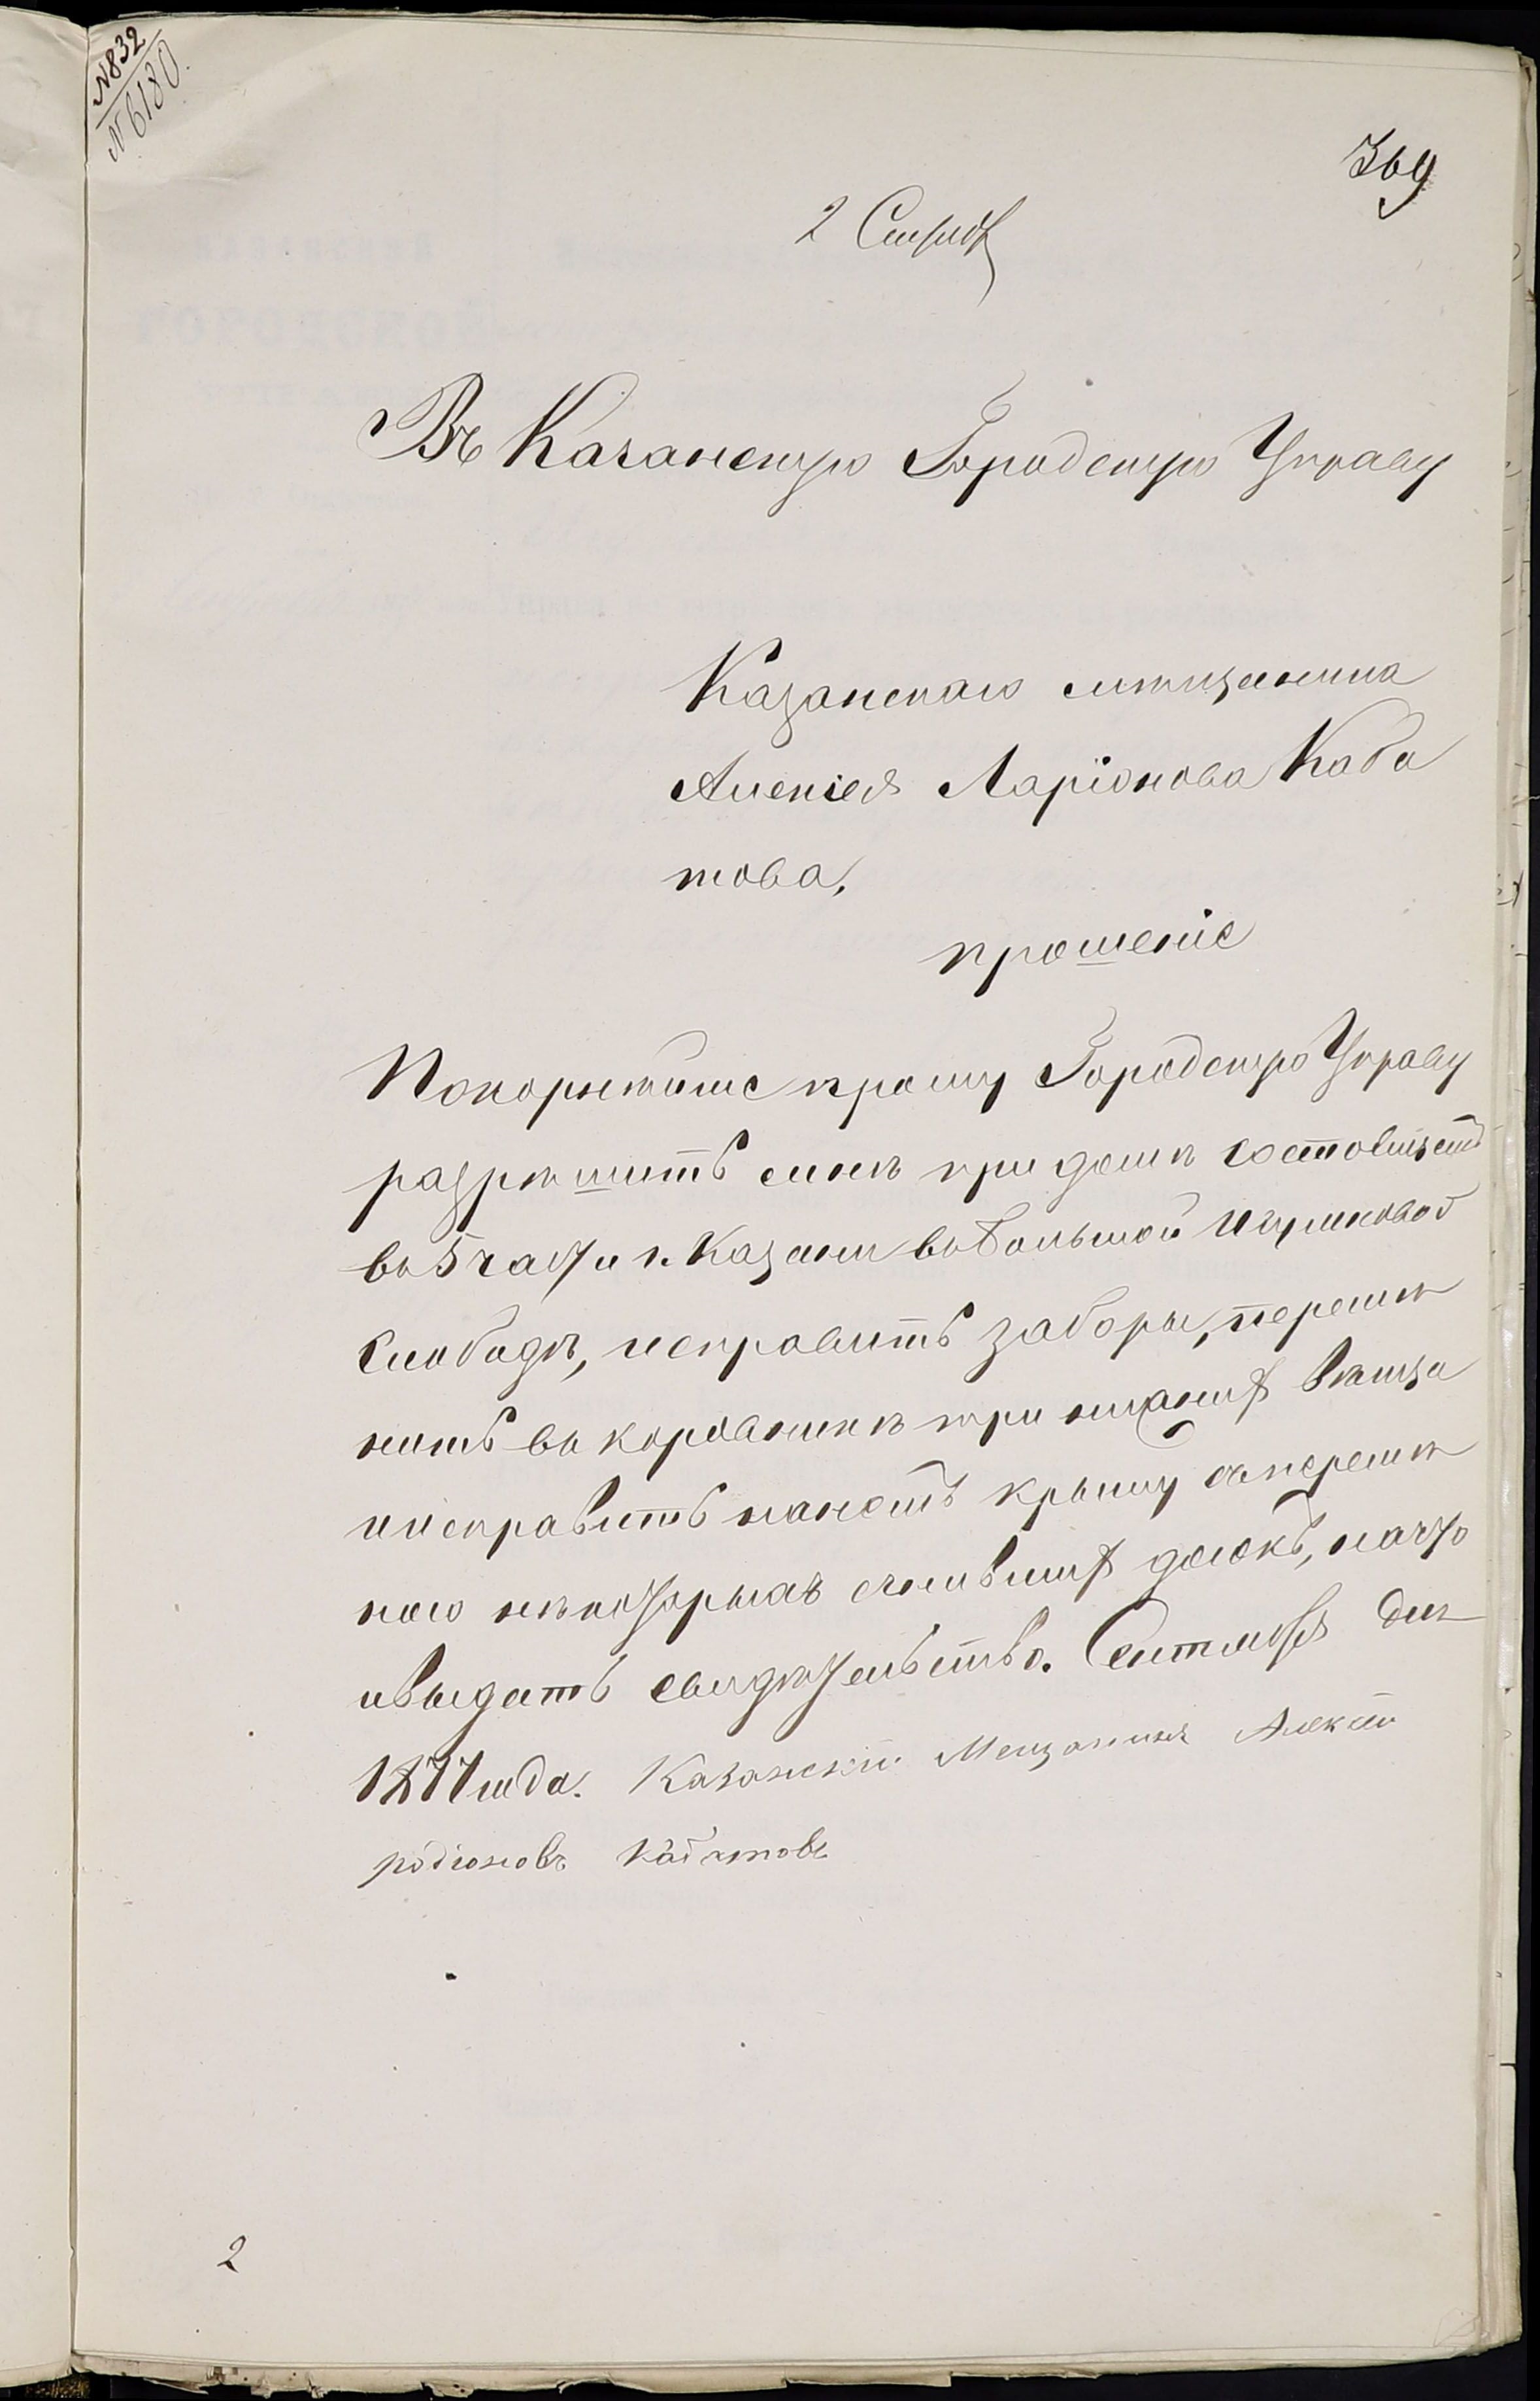 N 832
N 6180.
369
2 Сентяб
Въ Казанскую Городскую Управу
Казанскаго мѣщанина
Алексея Ларіонова Каба
това,
прошеніе
Покорнѣйше прошу Городскую Управу
разрѣшить мнѣ при домѣ состоящемъ
въ 5 части г. Казани въ Большой Игумновой
слободѣ, исправить заборы, перемѣ
нить въ коровникѣ три нижних венца
и исправить на немъ крышу съ переме
ною некоторыхъ сгнивших досокъ, на что
и выдать свидѣтельство. Сентября дня
1877 года. Казанскій Мещанинъ Алексей
родионовъ Кабатовъ
2